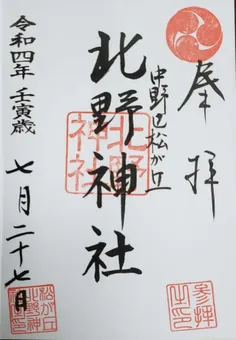 奉拝
中野区松が丘
北野神社
北野神社
令和四年 壬寅歳
七月二十七日
参拝之印
松が丘北野神社印